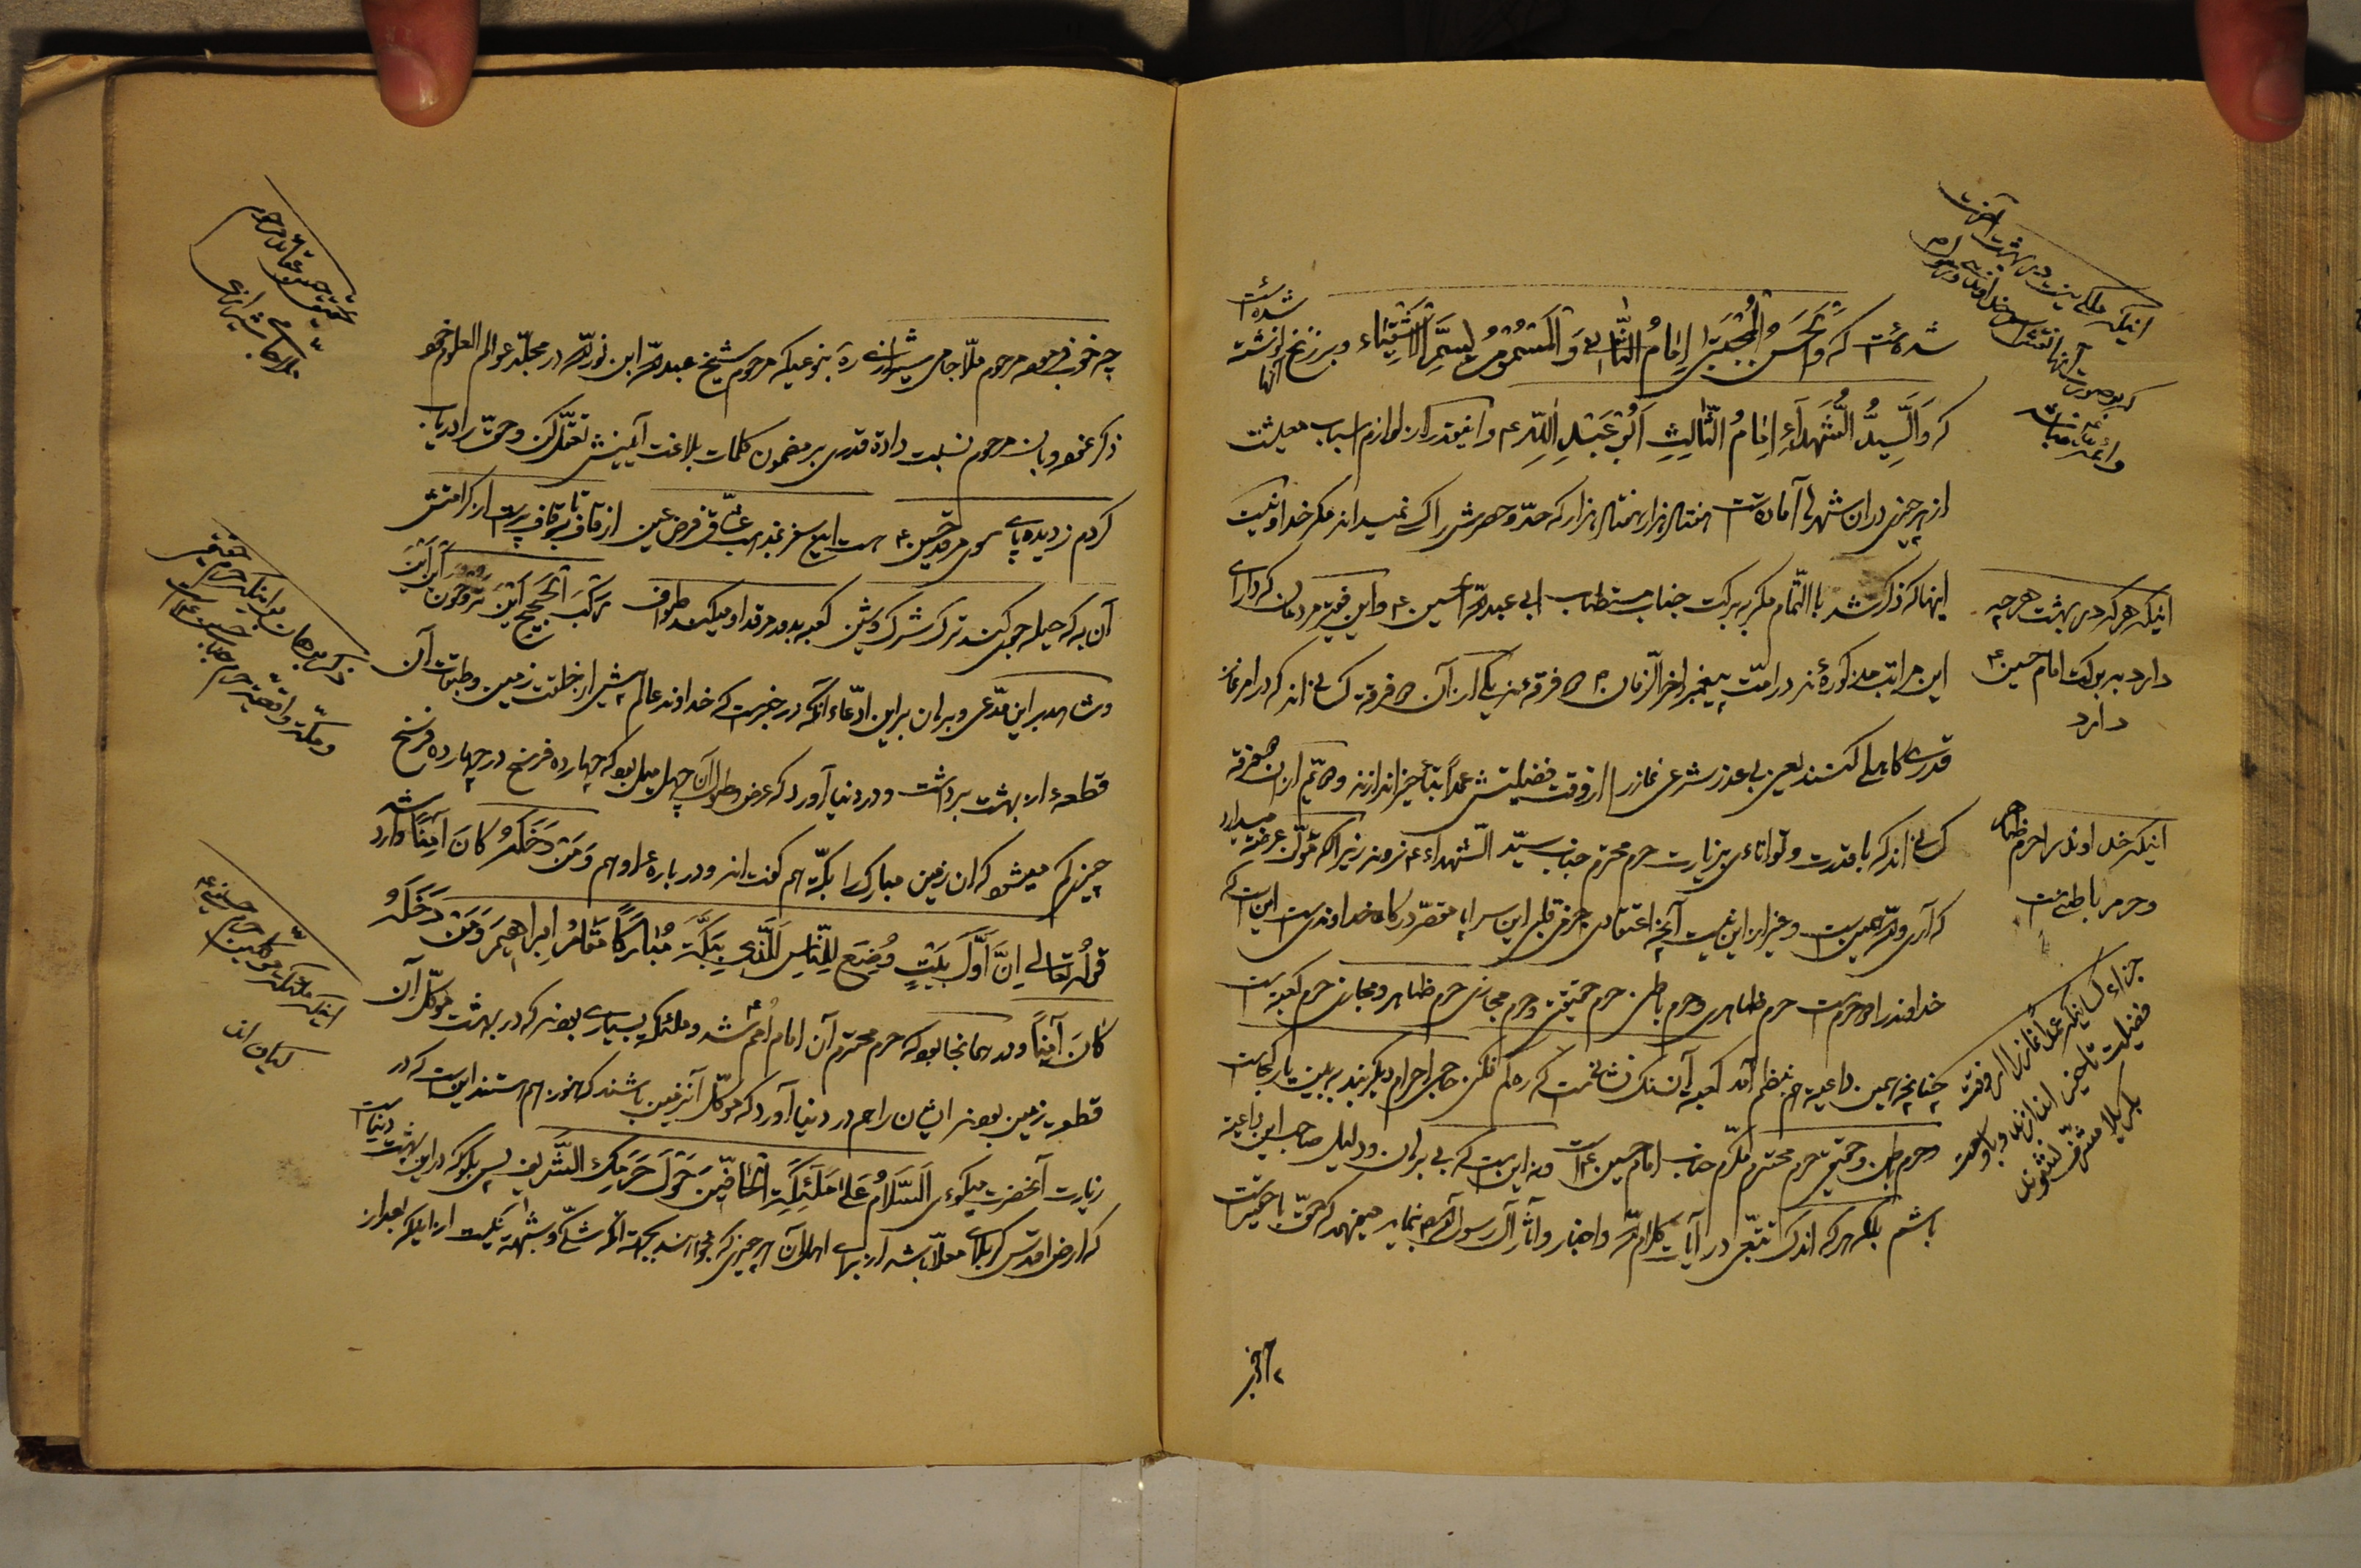 شده‌است که وَالْحَسَنُ الْمُجْتَبیٰ اِمٰامُ الثّٰانی وَ الْمَسْمُومُ بِسَمِّ الْاَشْقِیٰاء و بر زنخ نوشته شده است
که وَالسَّیِّدُ الشُّهَدٰآءِ اِمٰامُ الثّٰالِثِ اَبُو عَبْدِ اللّٰهِ ع و اینقدر از لوازم اسباب معیشت
از هر چیزی در ان شهرها آماده است هفتاد هزار هفتاد هزار که حدّ و حصرش را کسی نمیداند مگر خداوند نیست
اینها که ذکر شد باالتّمام مگر به برکت جناب مستطاب ابی عبدالله الحسین ع و این فقیر مردمان که دارای
این مراتب مذکوره‌اند در امّت پیغمبر اخر الزّمان ص فرقه‌اند یکی از آن فرقه کسانی‌اند که در امر نماز
قدری کاهلی کنند یعنی بی عذر شرعی نماز را از وقت فضیلتش عمداً بتأخیر اندازند و دیّم از ان فرقه
کسانی‌اند که با قدرت و توانائی بزیارت حرم محترم جناب سیّد الشّهداء ع نروند زیرا که
که آری والله همین است و غیر از این نیست آنچه اعتقادی جزمی قلبی این سراپا مقصّر درگاه خداوندی است این است که
خداوند را دو حرم است حرم ظاهری و حرم باطنی حرم حقیقی و حرم مجازی حرم ظاهر و مجازی حرم کعبه است
چنانچه همین داعیه هم بنظم آمد کعبه آن سنگ نشانی است که ره گم نکنی حاجی احرام دیگر بند ببین یار کجاست
و حرم باطن و حقیقی حرم محترم مکرّم جناب امام حسین ع است و نه این است که بی برهان و دلیل صاحب این داعیه
باشم بلکه هر که اندک تتبّعی در آیات کلام الله و اخبار و آثار آل رسول الله ص نماید میفهمد که حقّ با حقیر است
اینکه هر که در بهشت هر چه
دارد ببرکت امام حسین ع
دارد
اینکه خداوند را حرم ظاهر
و حرم باطنی است
جزاء کسانیکه عمداً نماز را از وقت
فضیلت تاخیر اندازند و با وسعت
بکربلا مشرّف نشوند
چه خوب فرموده مرحوم ملّا جامی شیرازی ره بنوعیکه مرحوم شیخ عبدالله ابن نورالله در مجلّد عوالم العلوم خود
ذکر نموده و بان مرحوم نسبت داده قدری بر مضمون کلمات بلاغت آئینش تعقّل کن و حقّ را دریاب
کردم ز دیده پای سوی مرقد حسین ع هست این سفر بمذهب عشّاق فرض عین از قاف تا بقاف پر است از کرامتش
آن به که حیله جوی کند ترک شرک و شین کعبه بدور مرقد او میکند طواف رَکْبَ الْحَجیجِ اَیْنَ تَرُوحُونَ اَیْنَ اَیْنَ
و شاهد بر این مدّعی و برهان بر این ادّعاء آنکه در خبر است که خداوند عالم پیش از خلقت زمین و طبقات آن
قطعهٔ از بهشت برداشت و در دنیا آورد که عرض و طول آن چهل میل بود که چهارده فرسخ در چهارده فرسخ
چیزی کم میشود که ان زمین مبارک را بکّه هم گفته‌اند و درباره او هم وَمَنْ دَخَلَهُ کٰانَ آمِنًا وارد شده
قوله تعالی اِنَّ اَوَّلَ بَیْتٍ وُضِعَ لِلنّٰاسِ لَلَّذی بِبَکَّةَ مُبٰارَکًا مَقٰامُ اِبْراهیمَ وَمَنْ دَخَلَهُ
کٰانَ آمِنًا و در همانجا بود که حرم محترم آن امام امم ع شد و ملئکه بسیاری بودند که در بهشت موکّل آن
قطعه زمین بودند ایشان را هم در دنیا آورد که موکّل آنزمین باشند که هنوز هم هستند این است که در
زیارت آنحضرت میگوئی اَلسَّلامُ عَلیٰ مَلٰئِکَةِ الْحٰافّینَ حَوْلَ حَرَمِکَ الشَّریفِ پس بگو که در این بهشت دنیا است
که ارض اقدس کربلای معلّا باشد از برای اهالی آن هر چیزی که بخواهند بجهت آنکه شکّی و شبهه نیست از اینکه بعد از
ذکر برهان بر اینکه حرم حقیقی
و مکّه واقعی حرم جناب حسین ع است
اینکه ملئکه موکّلین حرم حسینی ع
کیان‌اند